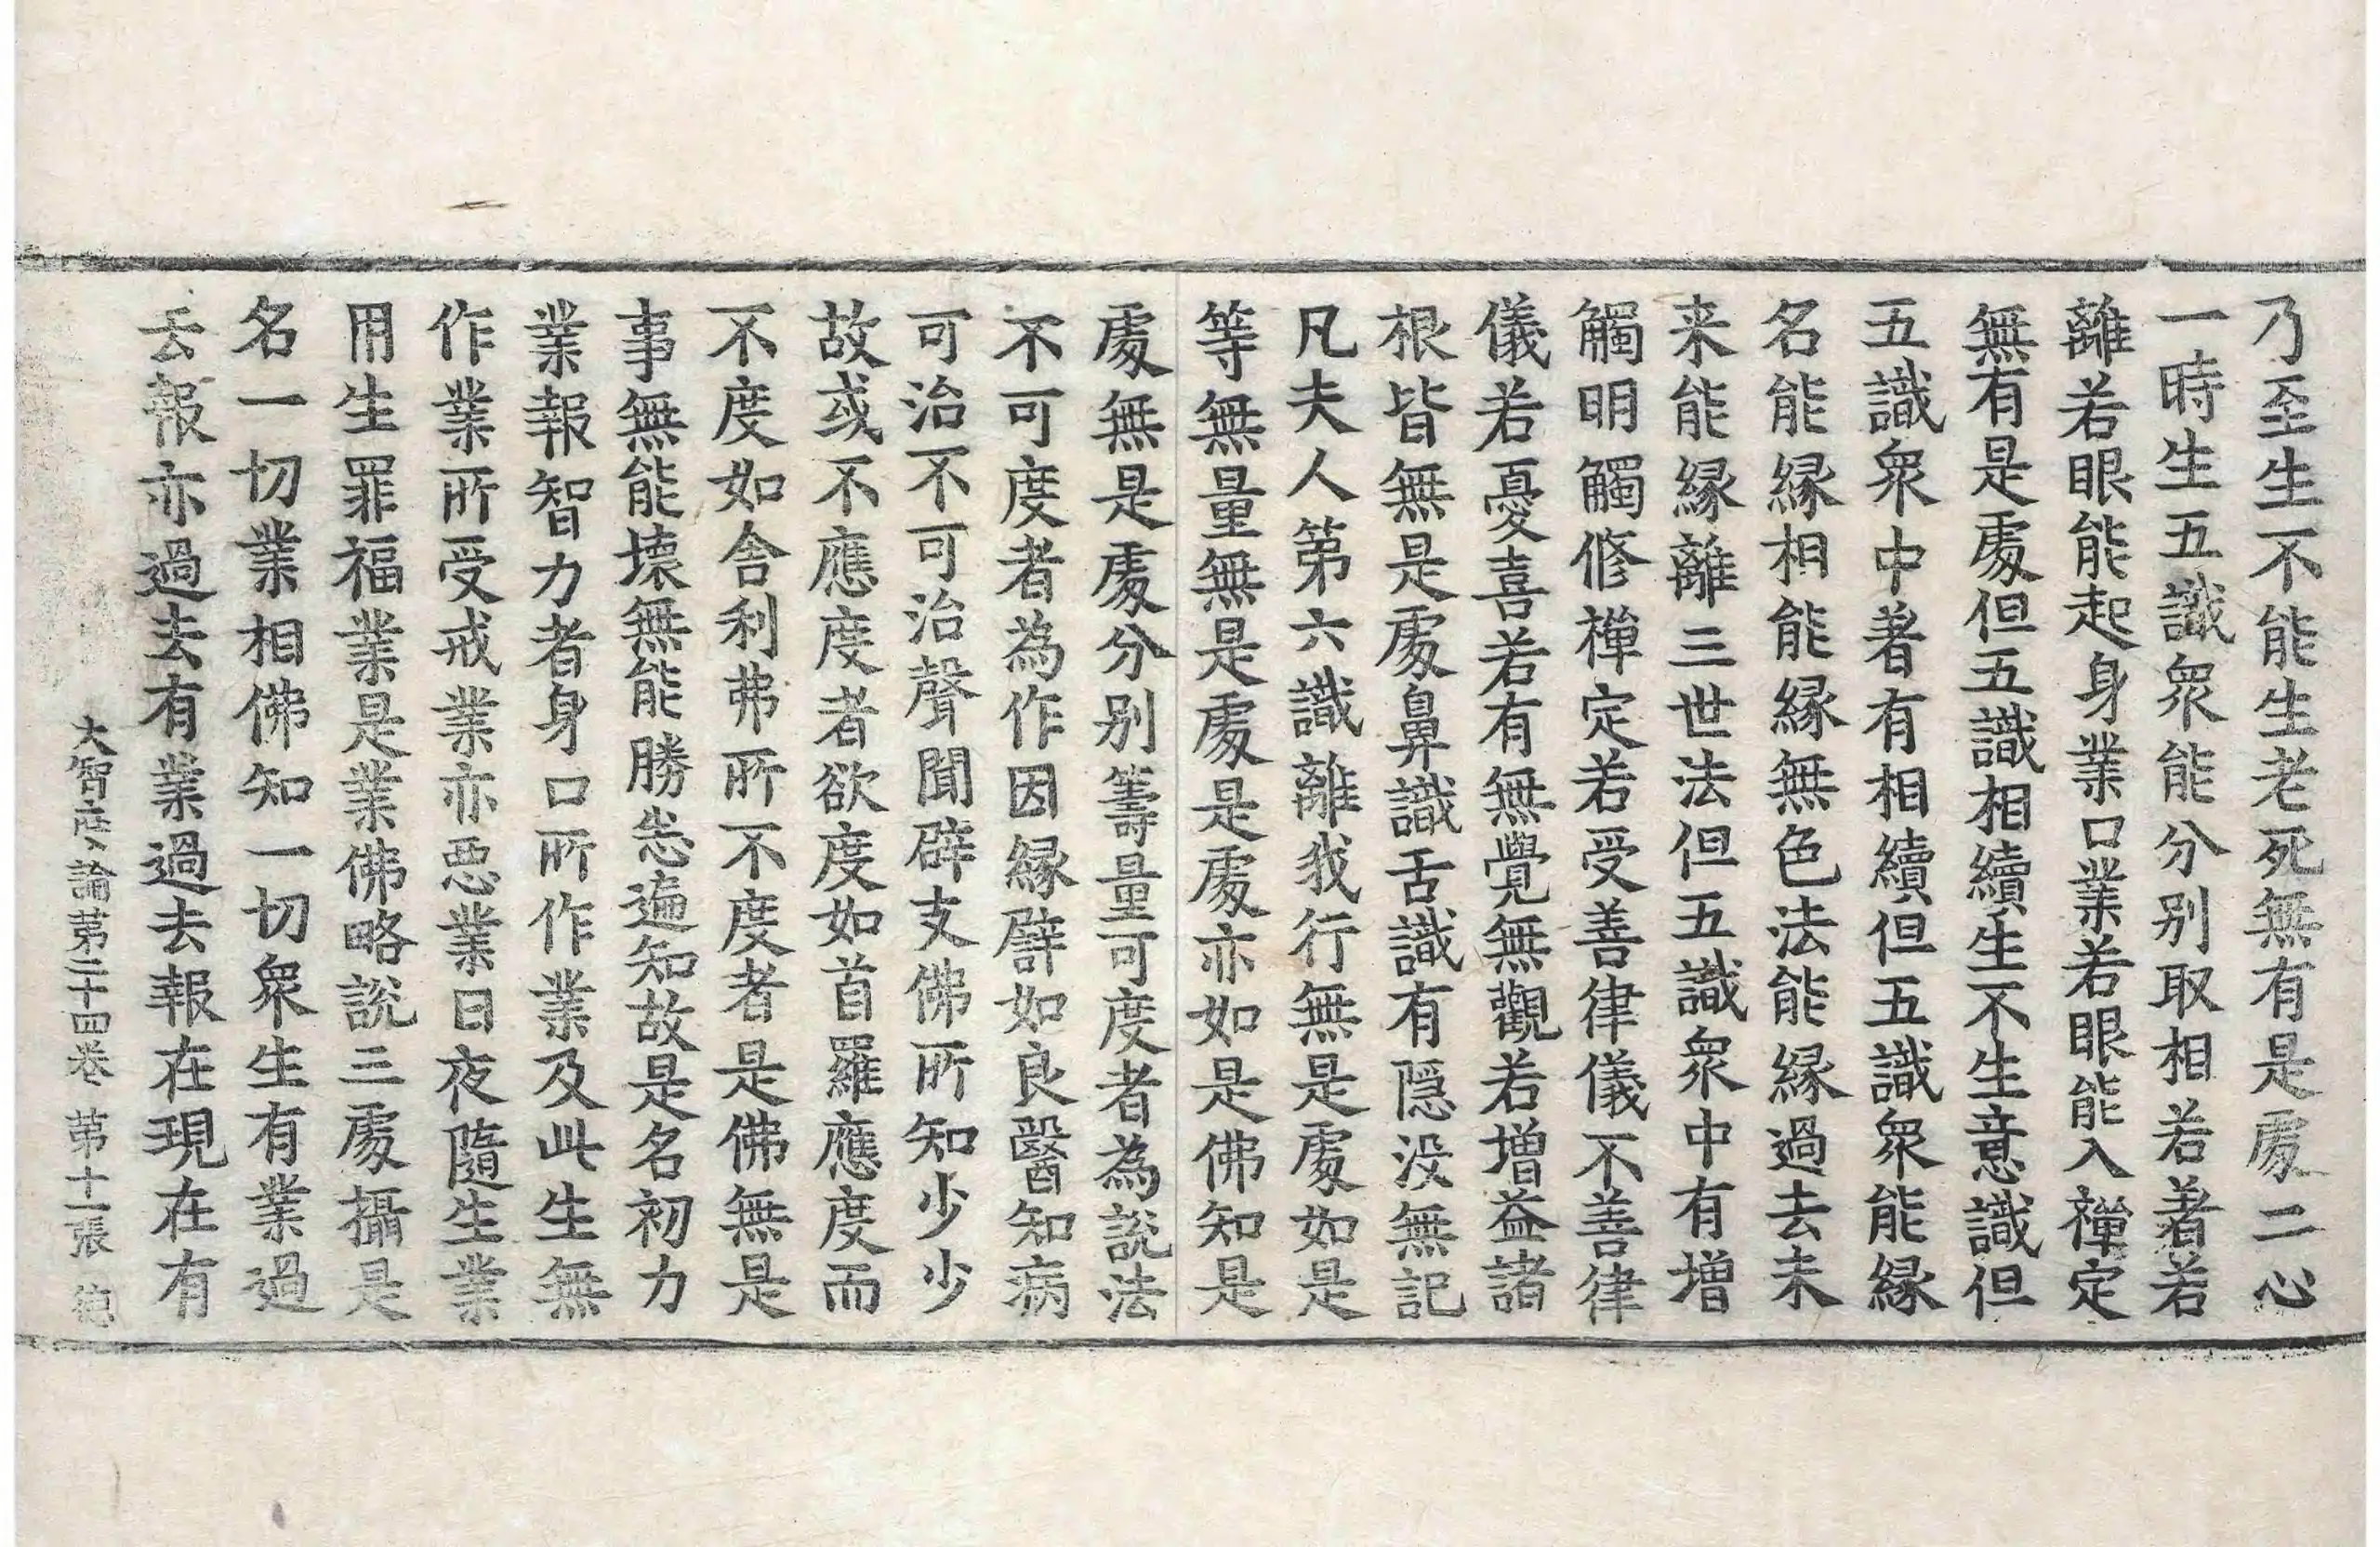 乃至生不能生老死無有是處二心
一時生五識衆能分別取相若著若
離若眼能起身業口業若眼能入禪定
無有是處但五識相續生不生意識但
五識衆中著有相續但五識衆能緣
名能緣相能緣無色法能緣過去未
来能緣離三世法但五識衆中有增
觸明觸修禪定若受善律儀不善律
儀若憂喜若有無覺無觀若增益諸
根皆無是處鼻識舌識有隱没無記
凡夫人第六識離我行無是處如是
等無量無是處是處亦如是佛知是
處無是處分別籌量可度者為說法
不可度者為作因緣譬如良醫知病
可治不可治聲聞辟支佛所知少少
故或不應度者欲度如首羅應度而
不度如舍利弗所不度者是佛無是
事無能壞無能勝悉遍知故是名初力
業報智力者身口所作業及此生無
作業所受戒業亦惡業日夜隨生業
用生罪福業是業佛略說三處攝是
名一切業相佛知一切衆生有業過
去報亦過去有業過去報在現在有
大智度論第二十四卷 第十一張